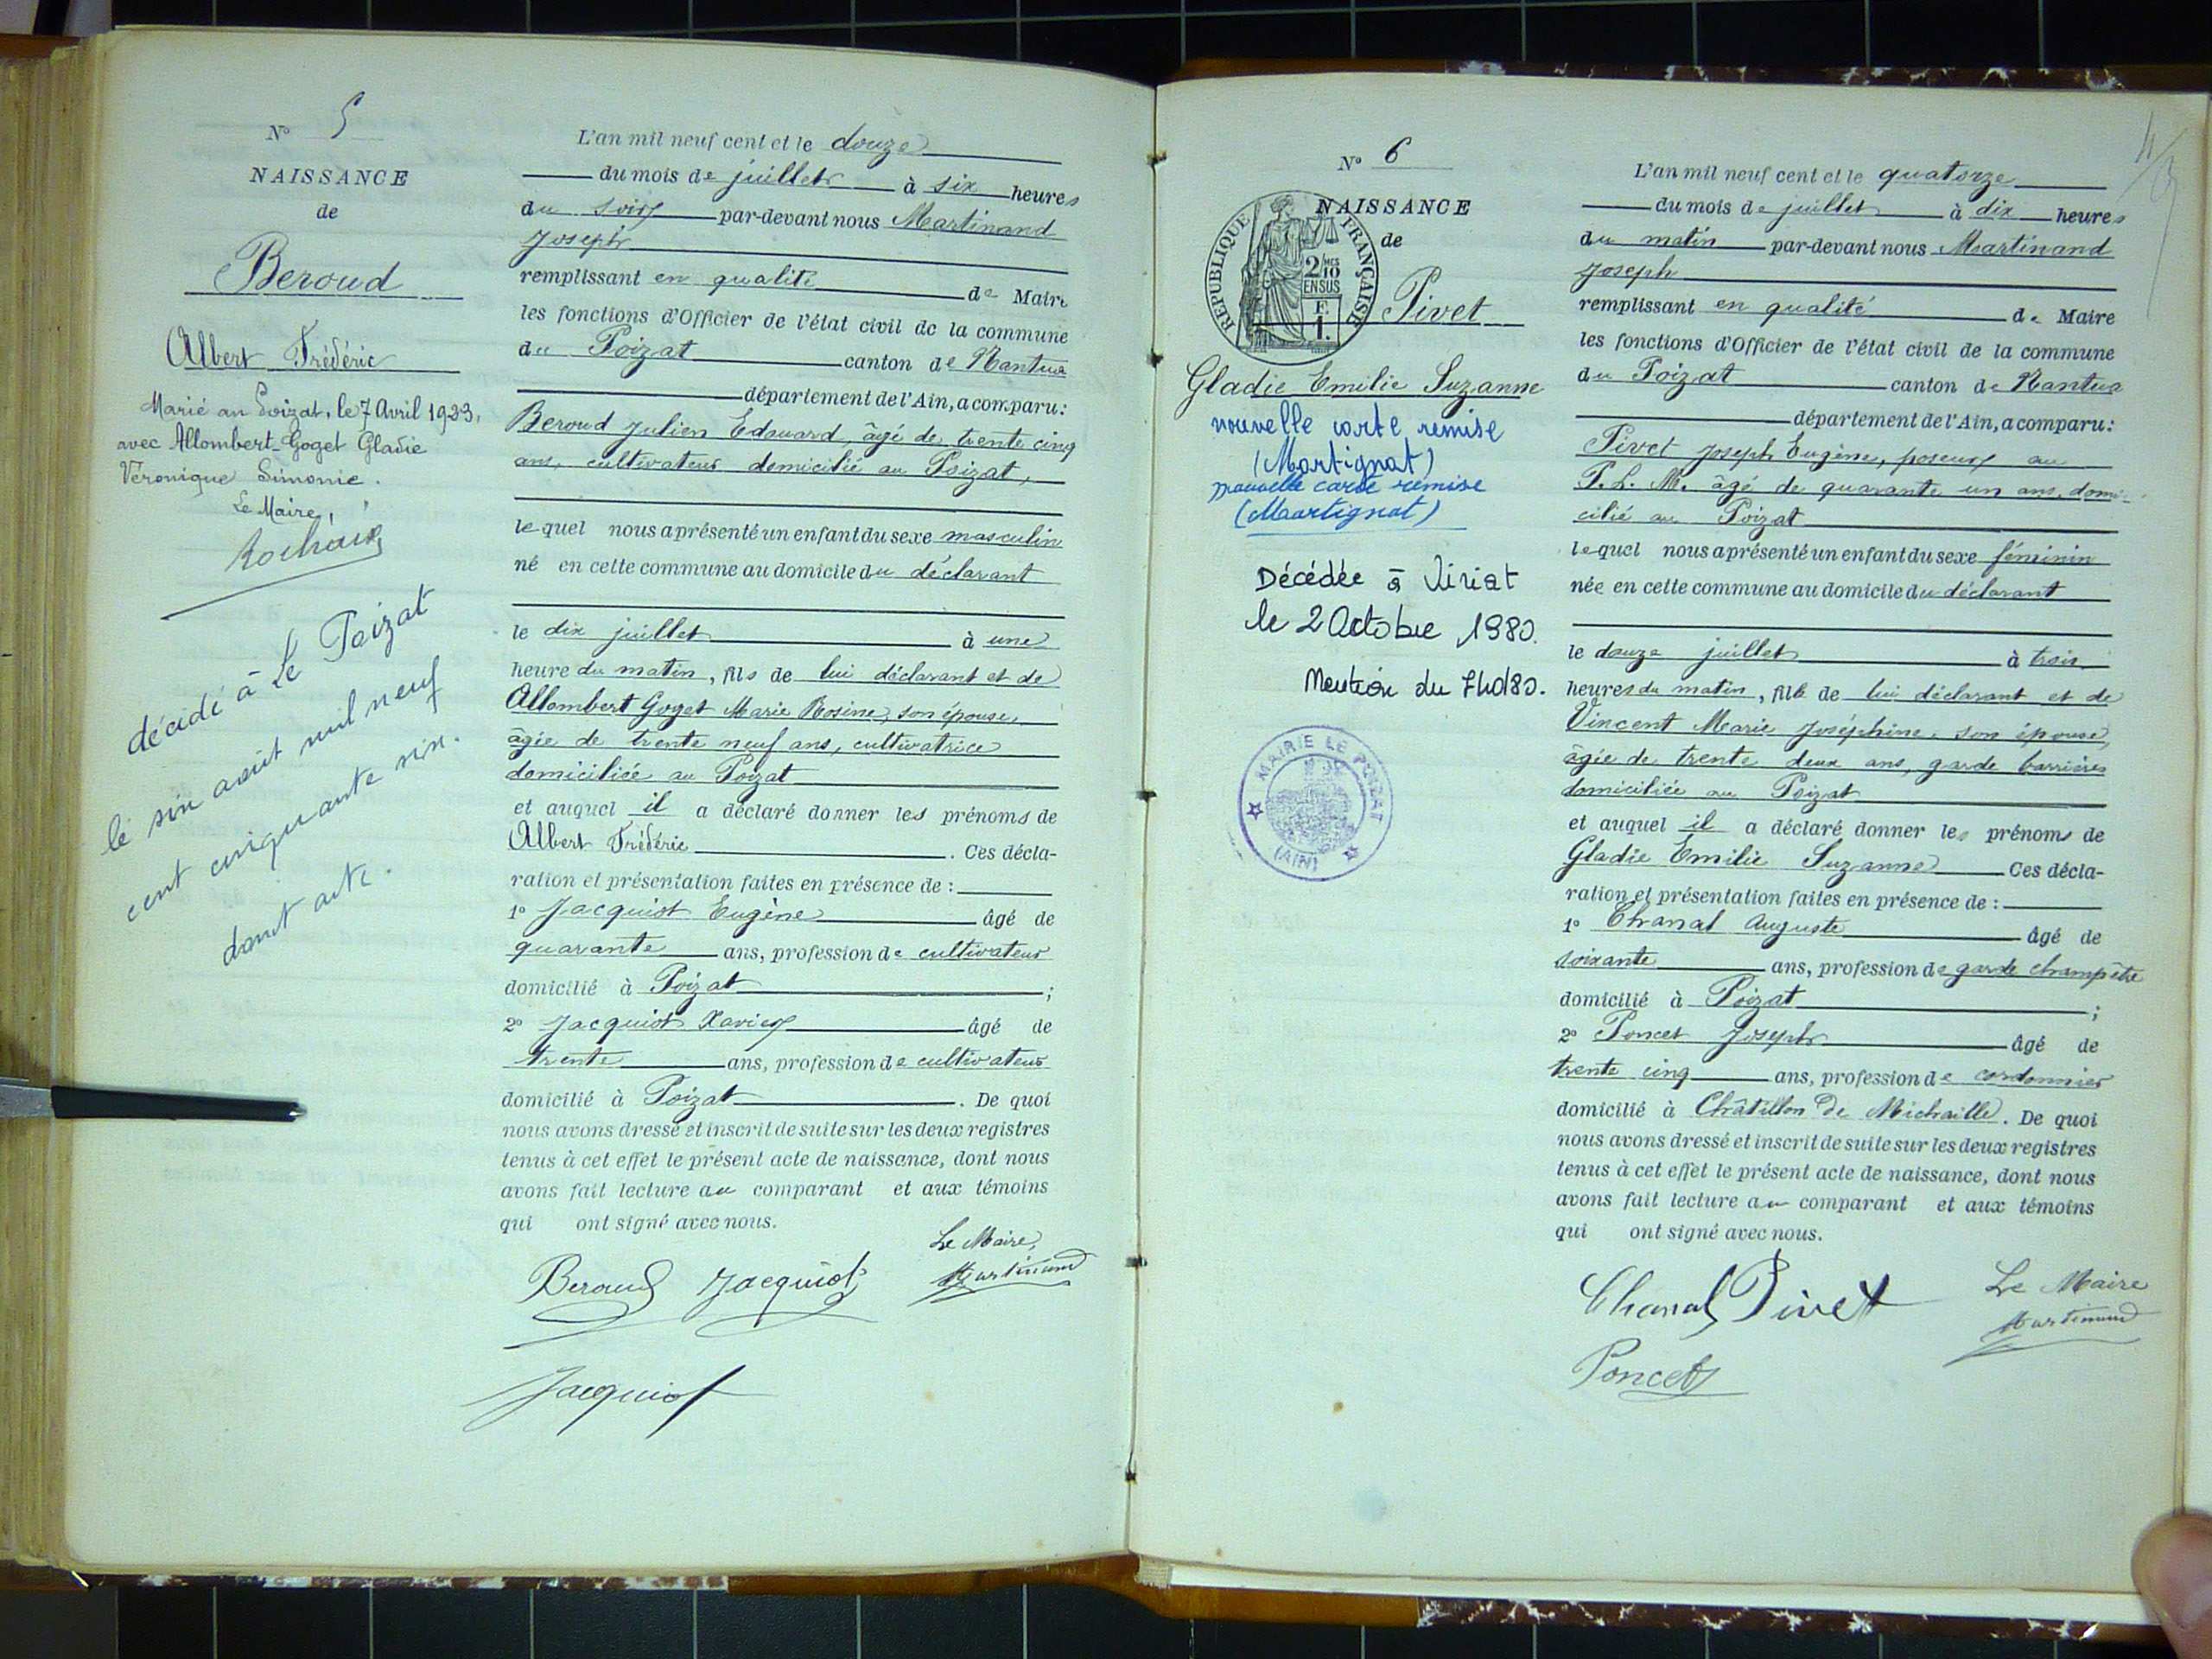 N° 5
NAISSANCE
de
Beroud
Albert Frédéric
Marié au Poizat, le 7 Avril 1923,
avec Allombert-Goget Gladie
Véronique Simonie.
Le Maire,
décidé à Le Poizat
le six août mil neuf
cent cinquante six.
dont acte.
L'an mil neuf cent et le douze
du mois de juillet à six heures
du soir par-devant nous Martinand
Joseph
remplissant en qualité de Maire
les fonctions d'Officier de l'état civil de la commune
du Poizat canton de Nantua
département de l'Ain, a comparu:
Beroud Julien Edouard, âgé de trente cinq
ans, cultivateur domicilié au Poizat,
lequel nous a présenté un enfant du sexe masculin
né en cette commune au domicile du déclarant
le dix juillet à une
heure du matin, fils de lui déclarant et de
Allombert Goget Marie Rosine, son épouse,
âgée de trente neuf ans, cultivatrice
domiciliée au Poizat
et auquel il a déclaré donner les prénoms de
Albert Frédéric. Ces décla-
ration et présentation faites en présence de :
1° Jacquiot Eugène âgé de
quarante ans, profession de cultivateur
domicilié à Poizat ;
2° Jacquiot Xavier âgé de
trente ans, profession de cultivateur
domicilié à Poizat. De quoi
nous avons dressé et inscrit de suite sur les deux registres
tenus à cet effet le présent acte de naissance, dont nous
avons fait lecture au comparant et aux témoins
qui ont signé avec nous.
Le Maire,
Beroud Jacquiot Martinand
Jacquiot
N° 6
NAISSANCE
de
REPUBLIQUE FRANÇAISE
2/10 MES
EN SUS
E
1.
Pivet
Gladie Emilie Suzanne
nouvelle carte remise
(Martignat)
nouvelle carte remise
(Martignat)
Décédée à Viriat
le 2 Octobre 1980.
Mention du 7/10/80.
MAIRIE LE POIZAT
(AIN)
L'an mil neuf cent et le quatorze
du mois de juillet à dix heures
du matin par-devant nous Martinand
Joseph
remplissant en qualité de Maire
les fonctions d'Officier de l'état civil de la commune
du Poizat canton de Nantua
département de l'Ain, a comparu:
Pivet Joseph Eugène, poseur au
P. L. M. âgé de quarante un ans, domi-
cilié au Poizat
lequel nous a présenté un enfant du sexe féminin
née en cette commune au domicile du déclarant
le douze juillet à trois
heures du matin, fille de lui déclarant et de
Vincent Marie Joséphine, son épouse,
âgée de trente deux ans, garde barrières
domiciliée au Poizat
et auquel il a déclaré donner les prénoms de
Gladie Emilie Suzanne Ces décla-
ration et présentation faites en présence de :
1° Chanal Auguste âgé de
soixante ans, profession de garde champêtre
domicilié à Poizat ;
2° Poncet Joseph âgé de
trente cinq ans, profession de cordonnier
domicilié à Châtillon de Michaille. De quoi
nous avons dressé et inscrit de suite sur les deux registres
tenus à cet effet le présent acte de naissance, dont nous
avons fait lecture au comparant et aux témoins
qui ont signé avec nous.
Chanal Pivet Le Maire
Martinand
Poncet